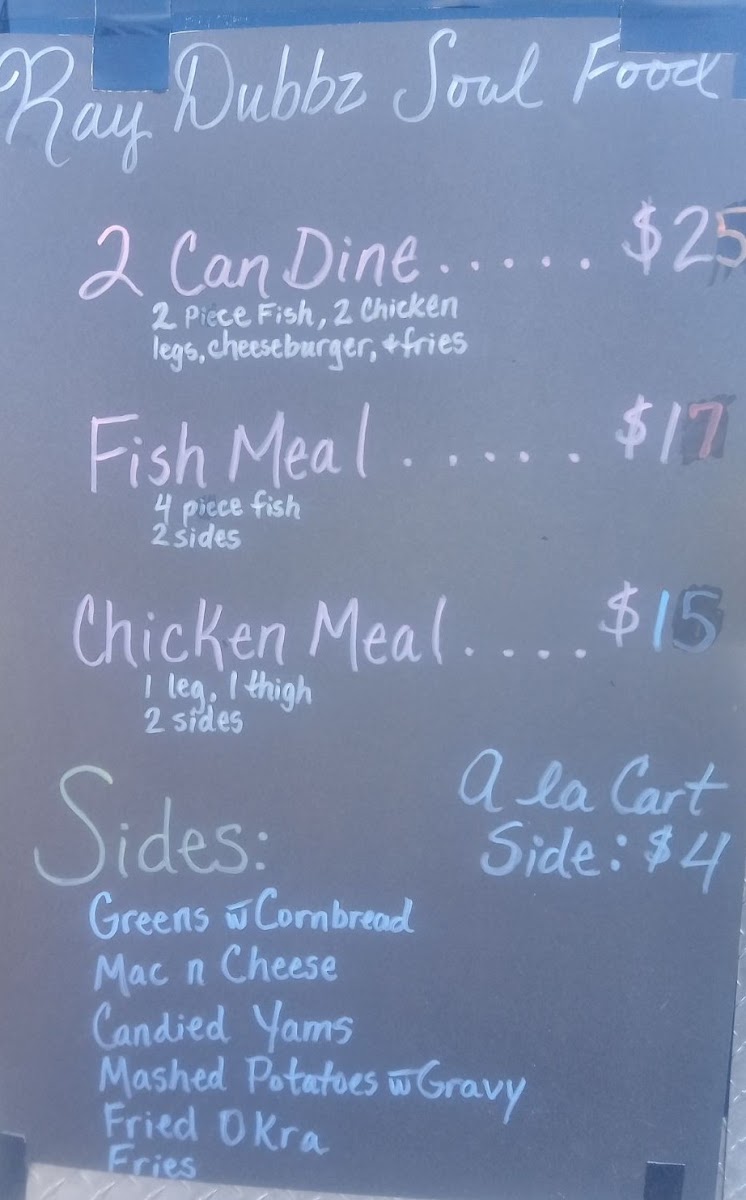 Ray Dubbz Soul Food
2 Can Dine..... $25
2 Piece Fish, 2 Chicken
legs, cheeseburger, + fries
Fish Meal ..... $17
4 piece fish
2 sides
Chicken Meal.... $15
1 leg, 1 thigh
2 sides
A la Cart
Side: $4
Sides:
Greens w̅ Cornbread
Mac n Cheese
Candied Yams
Mashed Potatoes w̅ Gravy
Fried OKra
Fries